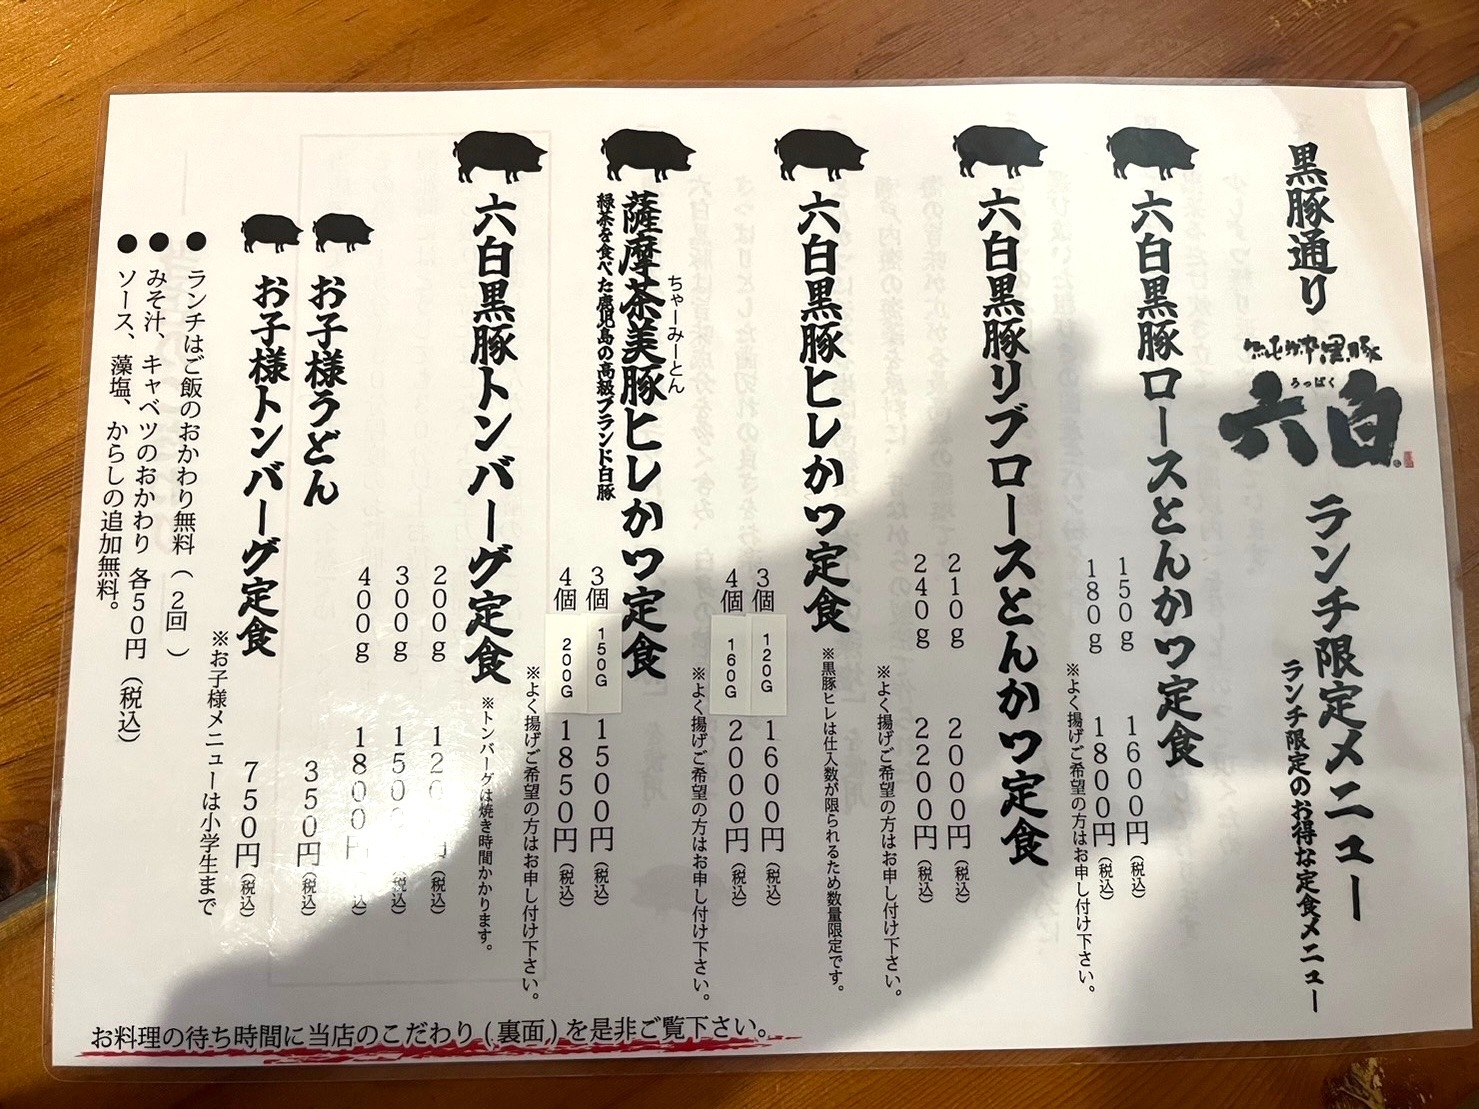 黒豚通り
純粋黒豚
ろっぱく
六白
ランチ限定メニュー
ランチ限定のお得な定食メニュー
六白黒豚ロースとんかつ定食
150g 1600円（税込）
180g 1800円（税込）
※よく揚げご希望の方はお申し付け下さい。
六白黒豚リブロースとんかつ定食
210g 2000円（税込）
240g 2200円（税込）
※よく揚げご希望の方はお申し付け下さい。
六白黒豚ヒレかつ定食
※黒豚ヒレは仕入数が限られるため数量限定です。
3個 120G 1600円（税込）
4個 160G 2000円（税込）
※よく揚げご希望の方はお申し付け下さい。
ちゃーみーとん
薩摩茶美豚ヒレかつ定食
緑茶を食べた鹿児島の高級ブランド白豚
3個 150G 1500円（税込）
4個 200G 1850円（税込）
※よく揚げご希望の方はお申し付け下さい。
六白黒豚トンバーグ定食
※トンバーグは焼き時間かかります。
200g 120 円（税込）
300g 150 （税込）
400g 1800円（税込）
お子様うどん
350円（税込）
お子様トンバーグ定食
750円（税込）
※お子様メニューは小学生まで
●ランチはご飯のおかわり無料（2回）
●みそ汁、キャベツのおかわり 各50円（税込）
●ソース、藻塩、からしの追加無料。
お料理の待ち時間に当店のこだわり(裏面)を是非ご覧下さい。